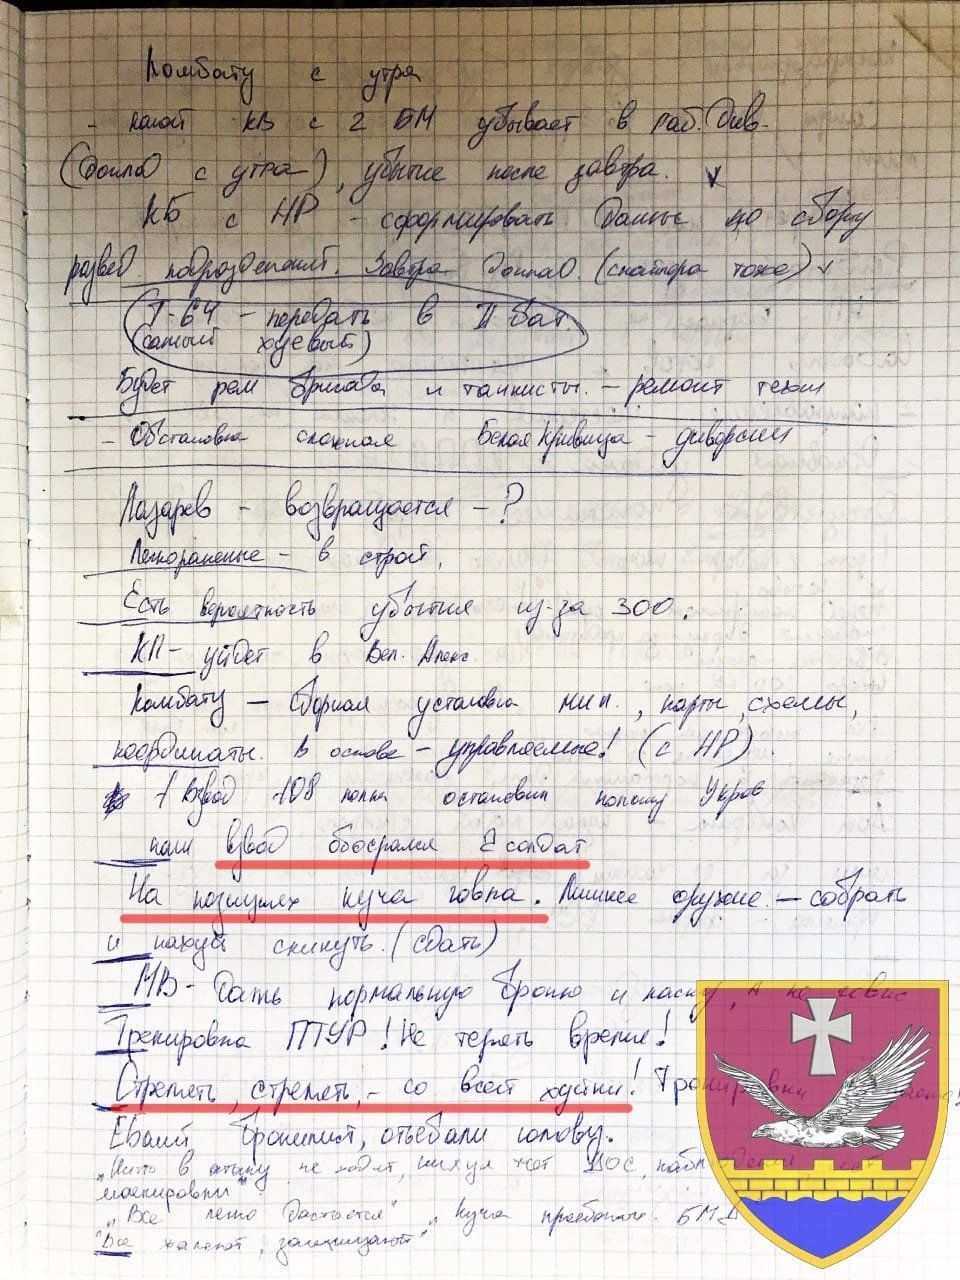 Комбату с утра
- какой КВ с 2 БМ убывает в раб. Див-
(доклад с утра), убытие после завтра.
КБ с НР - сформировать данные по сбору
развед. подразделений. Завтра доклад. (снайпера тоже)
Т-64 - передать в II бат.
(самый ходевый)
Будет рем бригада и танкисты. - ремонт техн
- Обстановка сложная Белая Криница - диверсии
Лазарев - возвращается - ?
Легкораненые - в строй.
Есть вероятность убытия из-за 300.
КП - уйдет в Вел. Алекс.
Комбату - сборная установка мин., карты, схемы,
координаты. В основе - управляемые! (с НР)
1 взвод 108 полка остановил колону Укров
наш взвод обосрался 2 солдат
На позициях куча говна. Лишнее оружие - собрать
и нахуй скинуть. (сдать)
МВ - дать нормальную броню и каску, а не говно
Тренировка ПТУР! Не терять время!
Стрелять, стрелять, - со всей хуйни! Тренировки
Ебаит бронелист, отъебали голову.
"Никто в атаку не ходит, нихуя нет ДОС,
маскировки"
"Все легко дастается" "куча БМД
"Все